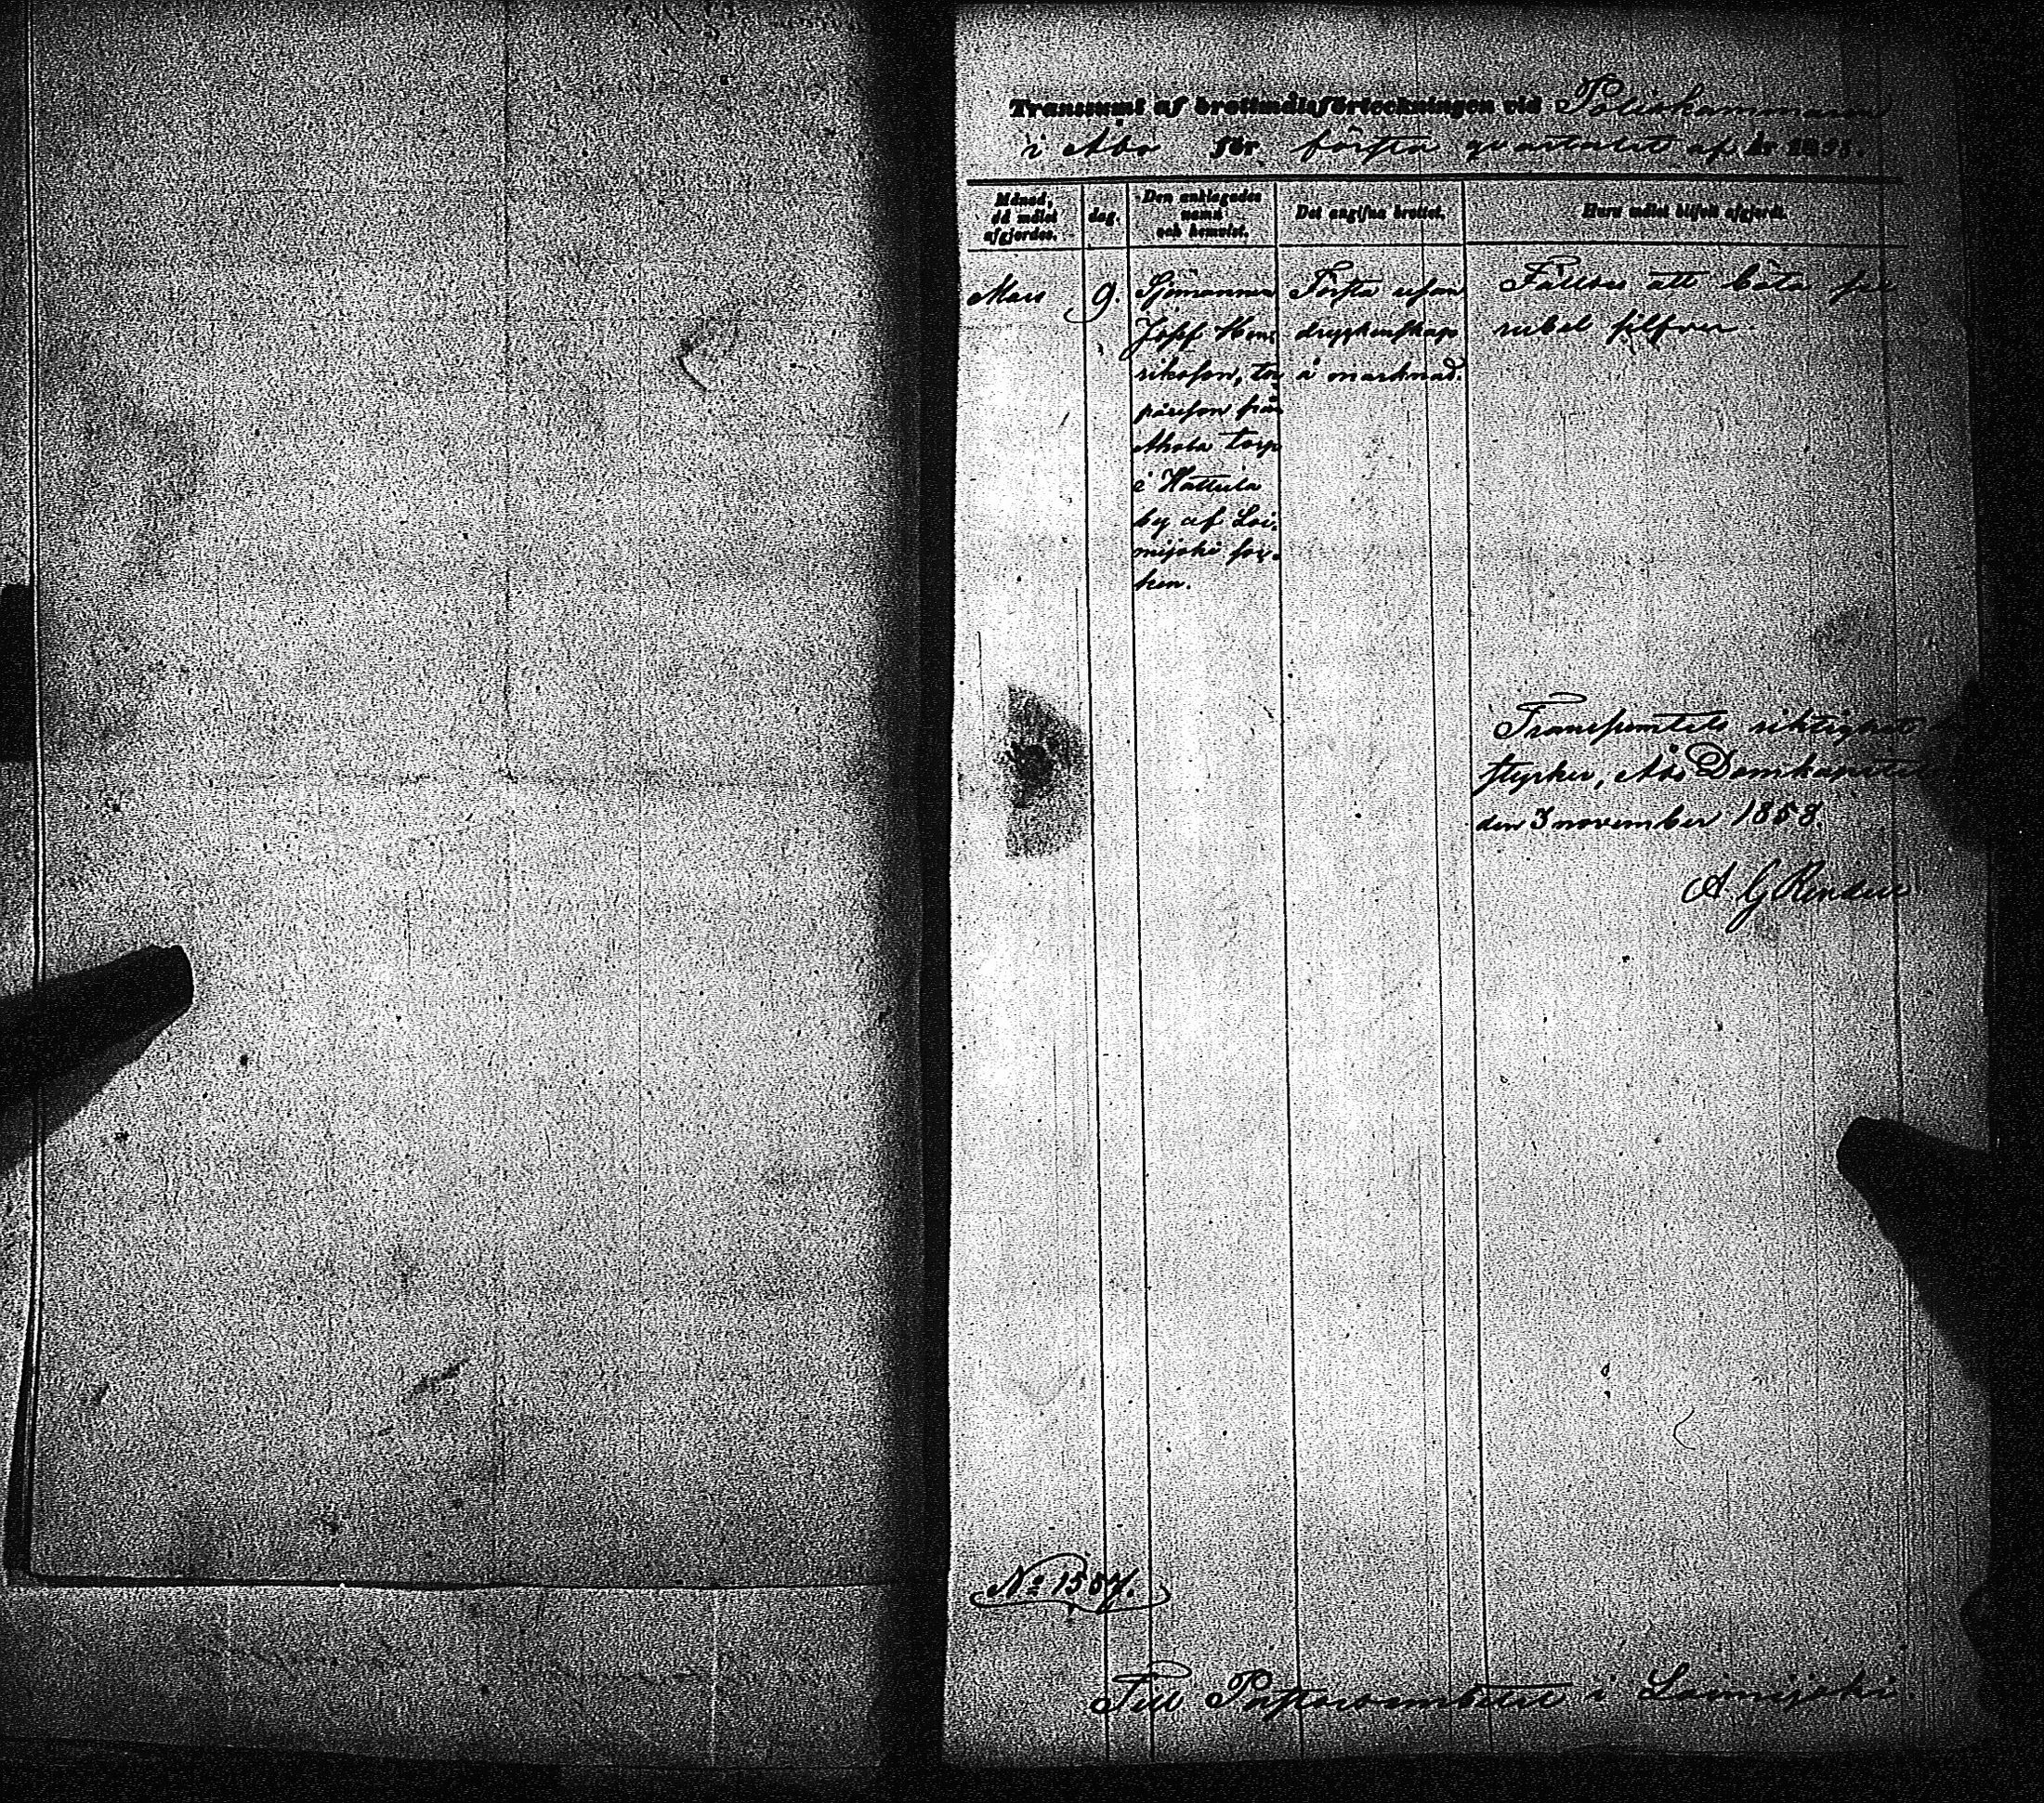 Transsumt af brottmålsförteckningen vid Poliskammaren
i Åbo för första qvartalet af år 1858.
Månad, då målet afgjordes.
dag.
Den anklagades namn och hemvist.
Det angifna brottet.
Huru målet blifvit afgjordt.
Mars
9.
Sjömannen
Josef Hen-
riksson, tor
pareson från
torp
i Hattula
by af Loi-
mijoki soc-
ken.
Första resan
dryckenskap
å marknad.
Fälldes att böta
rubel silfver.
Transsumtets riktighet
styrker, Åbo Domkapitel
den 3 november 1858.
A. G.
No 1557.
Till Pastorsembetet i Loimijoki.